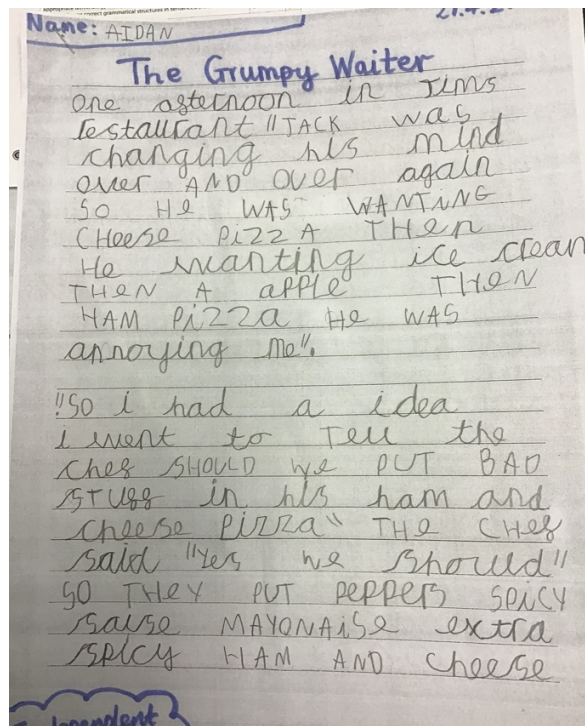 correct grammatical structures in sentences
Name: AIDAN
27.4.2
The Grumpy Waiter
one asternoon in Jims
restaurant "JACK was
changing his mind
over AND over again
SO He WAS WANTiNG
CHeese PiZZA THen
He wanting ice cream
THeN A apple THeN
HAM PiZZa He WAS
annoying me".
"So i had a idea
i went to Tell the
ches SHOULD we PUT BAD
STUss in his ham and
cheese Pizza" THe CHes
said "Yes we should"
SO THeY PUT PePPeRS SPiCY
sause MAYONAiSe extra
spicy HAM AND cheese
Independent